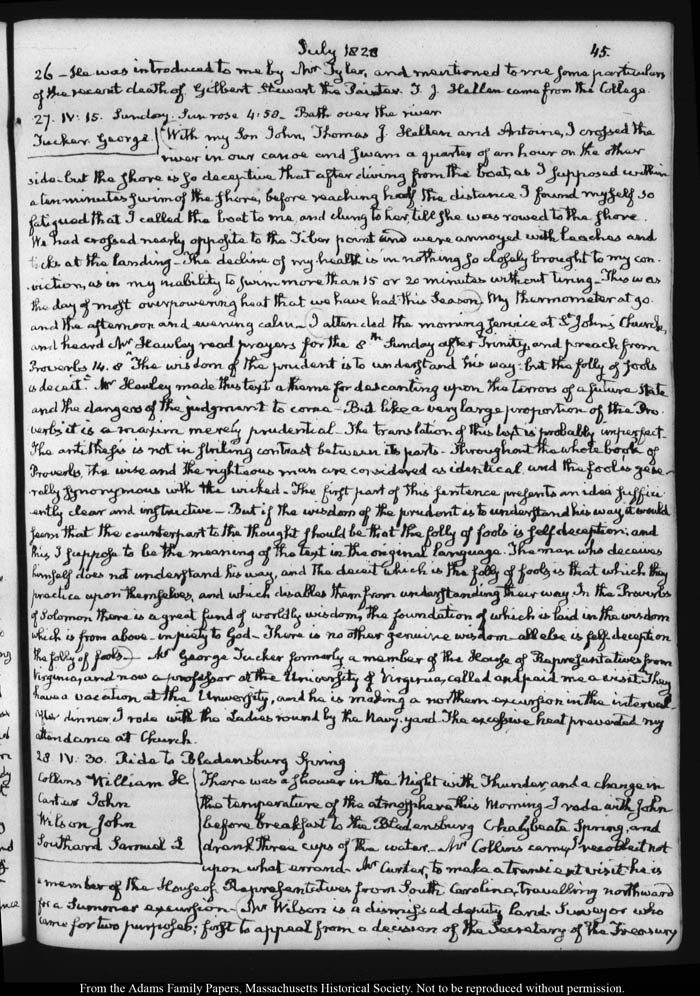 July 1828 45.
26 - He was introduced to me by Mr Tyler, and mentioned to me some particulars
of the recent death of Gilbert Stewart the Painter. T. J. Hellen came from the College.
27. IV: 15. Sunday. Sun rose 4:58 - Bath over the river
Tucker. George. With my Son John, Thomas J. Hellen and Antoine, I crossed the
river in our canoe and swam a quarter of an hour on the other
side - but the shore is so deceptive that after diving from the boat, as I supposed within
a ten minutes swim of the shore, before reaching half the distance I found myself so
fatigued that I called the boat to me, and clung to her, till she was rowed to the shore.
We had crossed nearly opposite to the Tiber point and were annoyed with leaches and
ticks at the landing - The decline of my health is in nothing so closely brought to my con-
-viction, as in my inability to swim more than 15 or 20 minutes without tiring - This was
the day of most overpowering heat that we have had this Season. My thermometer at 90.
and the afternoon and evening calm - I attended the morning service at St. John's Church,
and heard Mr Hawley read prayers for the 8th Sunday after Trinity, and preach from
Proverbs 14. 8 "The wisdom of the prudent is to understand his way: but the folly of fools
is deceit." Mr Hawley made this text a theme for descanting upon the terrors of a future state
and the dangers of the judgment to come - But like a very large proportion of the Pro-
verbs it is a maxim merely prudential - The translation of this text is probably imperfect -
The antithesis is not in striking contrast between its parts - Throughout the whole book of
Proverbs, the wise and the righteous man are considered as identical and the fool is gene-
rally synonymous with the wicked - The first part of this sentence presents an idea suffici-
ently clear and instructive - But if the wisdom of the prudent is to understand his way, it would
seem that the counterpart to the thought should be that the folly of fools is self deception; and
this, I suppose to be the meaning of the text in the original language. The man who deceives
himself does not understand his way, and the deceit which is the folly of fools is that which they
practice upon themselves, and which disables them from understanding their way. In the Proverbs
of Solomon there is a great fund of worldly wisdom, the foundation of which is laid in the wisdom
which is from above - in piety to God - There is no other genuine wisdom - all else is self deception
the folly of fools - Mr George Tucker formerly a member of the House of Representatives from
Virginia, and now a professor at the University of Virginia, called and paid me a visit. They
have a vacation at the University, and he is making a northern excursion in the interval -
After dinner I rode with the Ladies round by the Navy-yard. The excessive heat prevented my
attendance at Church.
28 IV: 30. Ride to Bladensburg Spring
Collins William There was a shower in the Night with Thunder, and a change in
Carter John the temperature of the atmosphere this Morning - I rode with John
Wilson John before breakfast to the Bladensburg Chalybeate Spring, and
Southard Samuel L drank three cups of the water - Mr Collins came, I recollect not
upon what errand - Mr Carter, to make a transient visit he is
a member of the House of Representatives from South Carolina, travelling northward
for a Summer excursion - Mr Wilson is a dismissed deputy Land Surveyor who
came for two purposes; first to appeal from a decision of the Secretary of the Treasury
From the Adams Family Papers, Massachusetts Historical Society. Not to be reproduced without permission.